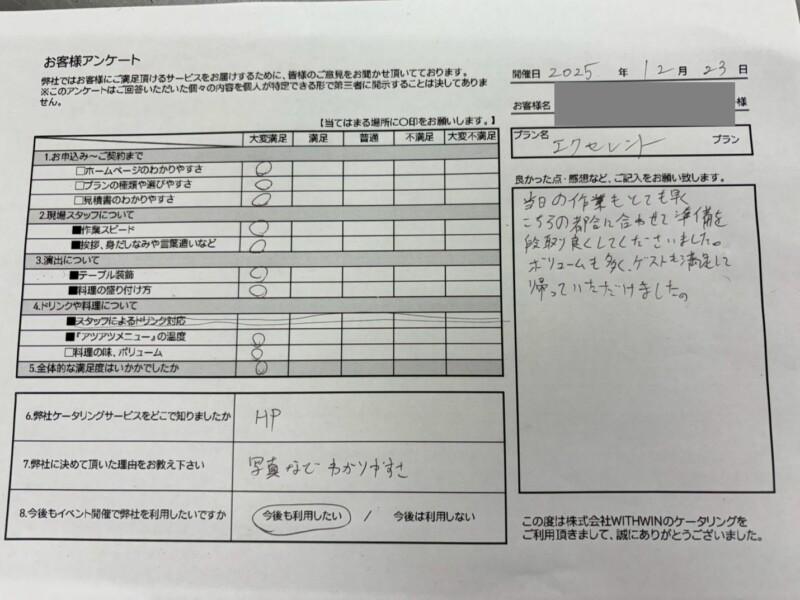 お客様アンケート
弊社ではお客様にご満足頂けるサービスをお届けするために、皆様のご意見をお聞かせ頂いております。
※このアンケートはご回答いただいた個々の内容を個人が特定できる形で第三者に開示することは決してありま
せん。
【当てはまる場所に〇印をお願いします。】
大変満足 満足 普通 不満足 大変不満足
1.お申込み～ご契約まで
□ホームページのわかりやすさ ○
□プランの種類や選びやすさ ○
□見積書のわかりやすさ ○
2.現場スタッフについて
■作業スピード ○
■挨拶、身だしなみや言葉遣いなど ○
3.演出について
■テーブル装飾 ○
■料理の盛り付け方 ○
4.ドリンクや料理について
■スタッフによるドリンク対応
■『アツアツメニュー』の温度 ○
□料理の味、ボリューム ○
5.全体的な満足度はいかがでしたか ○
6.弊社ケータリングサービスをどこで知りましたか HP
7.弊社に決めて頂いた理由をお教え下さい 写真などわかりやすさ
8.今後もイベント開催で弊社を利用したいですか 今後も利用したい / 今後は利用しない
開催日 2025 年 12 月 23 日
お客様名 様
プラン名 エクセレント プラン
良かった点・感想など、ご記入をお願い致します。
当日の作業もとても早く
こちらの都合に合わせて準備を
段取り良くしてくださいました。
ボリュームも多く、ゲストも満足して
帰っていただけました。
この度は株式会社WITHWINのケータリングを
ご利用頂きまして、誠にありがとうございました。